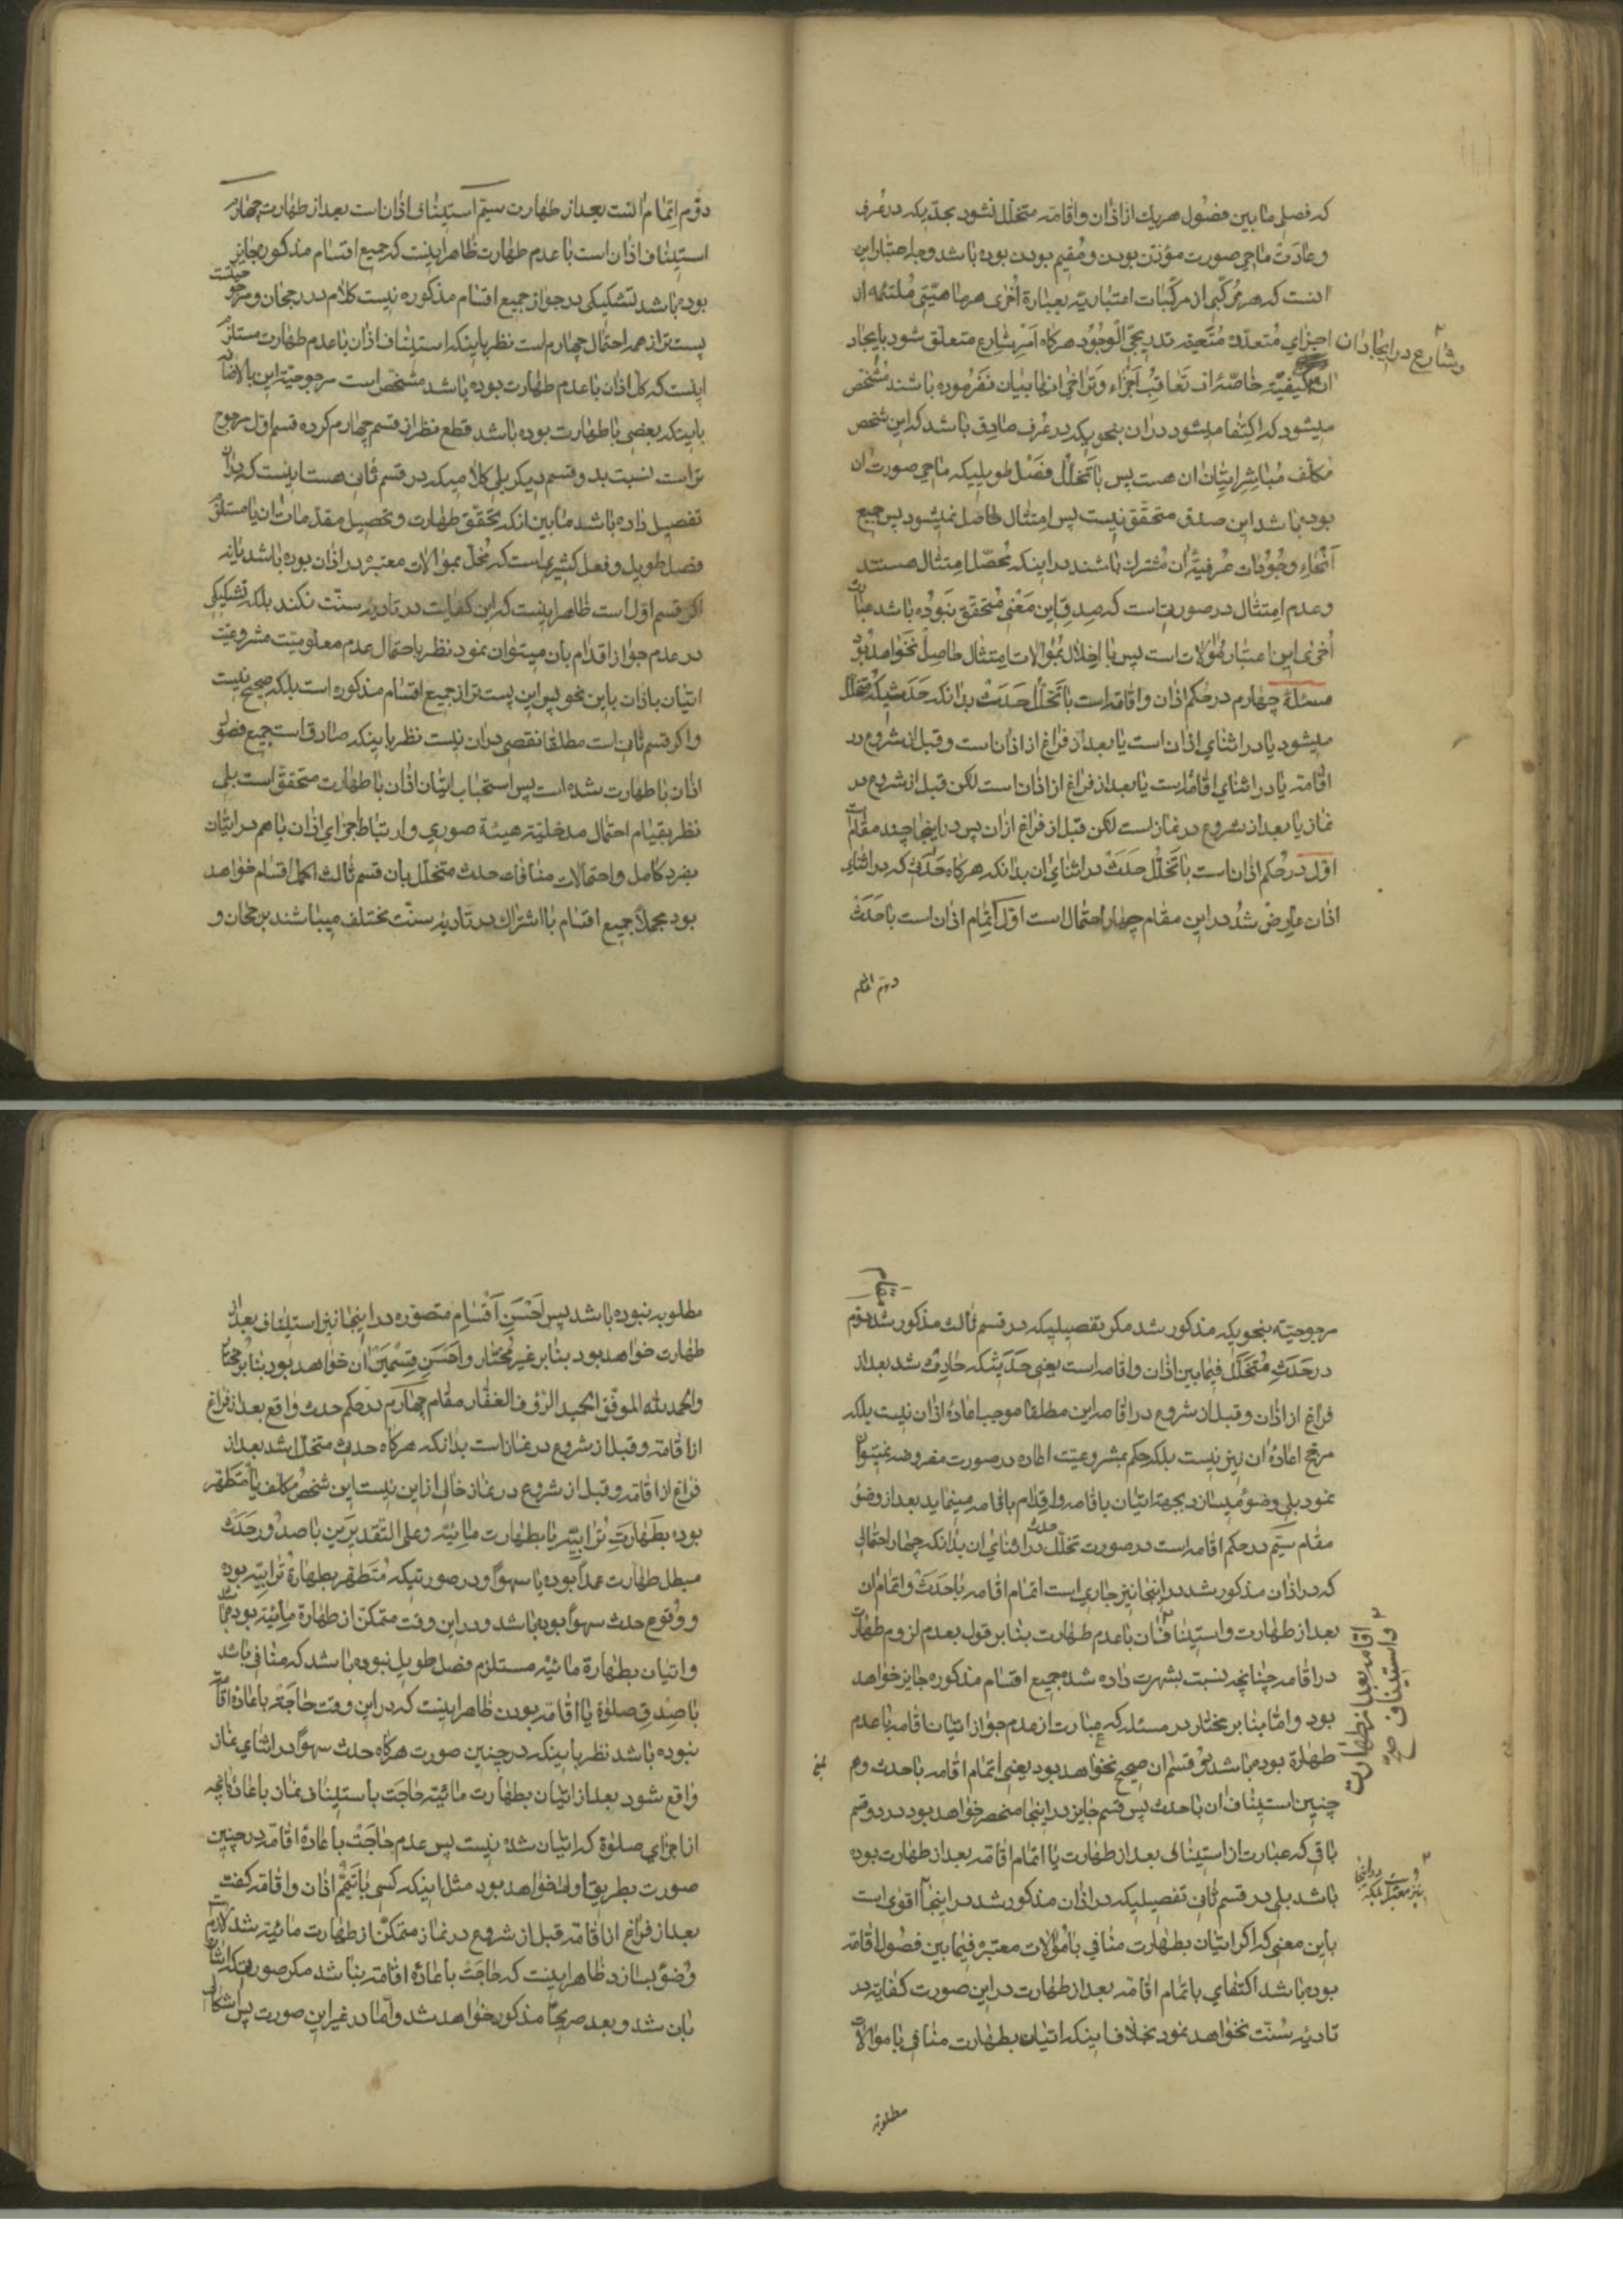 که فصلی مابین فصول هریك از اذان واقامه متخلّل نشود بحدّیکه در عُرف
وعادت ماحی صورت مؤذّن بودن ومُقیم بودن بوده باشد وجه اعتبار این
انست که هر مُرکّبی از مرکّبات اعتباریّه بعبارة اُخری هر ماهیّتی مُلتئمه از
اجزاي مُتعدّده مُتَعیّنه تدریجیّ الوُجُود هرکاه اَمرِ شارِع متعلّق شود بایجاد
وشارع در ایجاد ان
ان کیفیّة خاصّه از تَعاقُبِ اَجزاء وتراخی انها بیان نفرموده باشند مُشَخّص
میشود که اکتفا میشود در ان بنحویکه در عُرف صادق باشد که این شخص
مکلّف مُباشِرِ اِتیانِ ان هست پس با تَخلّل فصل طویلیکه ماحی صورت ان
بوده باشد این صدق متحقّق نیست پس اِمتثال حاصل نمیشود پس جمیع
اَنحاءِ وُجُوداتِ عُرفیّهٔ ان مُشترك باشند در اینکه مُحصّل اِمتثال هستند
وعدم اِمتثال در صورتیست که صدق این مَعنی مُتحقّق نبوده باشد عبارت
اُخری این اعتبار مُوالات است پس با اخلال بمُوالات اِمتثال حاصل نخواهد بود
مسئلهٔ چهارم در حُکم اذان واقامه است با تَخلّل حَدَث بدانکه حَدَثیکه متخلّل
میشود یا در اثنای اذان است یا بعد از فراغ از اذان است وقبل از شروع در
اقامه یا در اثنای اقامه است یا بعد از فراغ از اذان است لکن قبل از شروع در
نماز یا بعد از شروع در نماز است لکن قبل از فراغ ازان پس در اینجا چند مقام است
اوّل در حُکم اذان است با تَخلّل حَدَث در اثنای ان بدانکه هرکاه حَدَث که در اثنای
اذان عارِض شُد در این مقام چهار احتمال است اوّل اِتمام اذان است با حَدَث
دویّم اتمام
دوّم اِتمام انست بعد از طهارت سیّم استیناف اذان است بعد از طهارت چهارم
استیناف اذان است با عدم طهارت ظاهر اینست که جمیع اقسام مذکوره جایز
بوده باشد تشکیکی در جواز جمیع اقسام مذکوره نیست کلام در رجحان ومرجوحیّت
پست تر از همه احتمال چهارم است نظر باینکه استیناف اذان با عدم طهارت مستلزم
اینست که کلّ اذان با عدم طهارت بوده باشد مشخّص است مرجوحیّة این بالاضافه
باینکه بعضی با طهارت بوده باشد قطع نظر از قسم چهارم کرده قسم اوّل مرجوح
تر است نسبت بدو قسم دیکر بلی کلامیکه در قسم ثانی هست اینست که در ان
تفصیل داده باشد مابین انکه تحقّق طهارت وتحصیل مقدّمات ان یا مستلزم
فصل طویل وفعل کثیریست که مُخلّ بموالات معتبره در اذان بوده باشد یا نه
اکر قسم اوّل است ظاهر اینست که این کفایت در تادیه سنّت نکند بلکه تشکیکی
در عدم جواز اقدام بان میتوان نمود نظر باحتمال عدم معلومیّت مشروعیّت
اتیان باذان باین نحو پس این پست تر از جمیع اقسام مذکوره است بلکه صحیح نیست
واکر قسم ثانی است مطلقا نقصی در ان نیست نظر باینکه صادق است جمیع فصول
اذان با طهارت شده است پس استحباب اتیان اذان با طهارت متحقّق است بلی
نظر بقیام احتمال مدخلیّة هیئة صوری وارتباط اجزای اذان باهم در اتیان
بفرد کامل واحتمالات منافات حدث متخلّل بان قسم ثالث اکمل اقسام خواهد
بود مجملاً جمیع اقسام با اشتراك در تادیه سنّت مختلف میباشند برجحان و
مرجوحیّة بنحویکه مذکور شد مکر تفصیلیکه در قسم ثالث مذکور شد دوّم
مقام
در حَدَثِ مُتخلّل فیمابین اذان واقامه است یعنی حَدَثیکه حادث شد بعد از
فراغ از اذان وقبل از شروع در اقامه این مطلقا موجب اعادهٔ اذان نیست بلکه
مرجّح اعادهٔ ان نیز نیست بلکه حکم بمشروعیّت اعاده در صورت مفروضه نمیتوان
نمود بلی وضوء میسازد بجهة اتیان باقامه واِقدام باقامه مینماید بعد از وضوء
مقام سیّم در حکم اقامه است در صورت تخلّل حدث در اثنای ان بدانکه چهار احتمالی
که در اذان مذکور شد در اینجا نیز جاری است اتمام اقامه با حَدَث واتمام ان
بعد از طهارت واستیناف ان با عدم طهارت بنابر قول بعدم لزوم طهارت
واستیناف اقامه بعد از طهارت صح
در اقامه چنانچه نسبت بشهرت داده شده جمیع اقسام مذکوره جایز خواهد
بود وامّا بنابر مختار در مسئله که عبارت از عدم جواز اتیان اقامه با عدم
طهارة بوده باشد دو قسم ان صحیح نخواهد بود یعنی اتمام اقامه با حدث وهم
چنین استیناف ان با حدث پس قسم جایز در اینجا منحصر خواهد بود در دو قسم
باقی که عبارت از استیناف بعد از طهارت یا اتمام اقامه بعد از طهارت بوده
باشد بلی در قسم ثانی تفصیلیکه در اذان مذکور شد در اینجا اقوی است
باین معنی که اکر اتیان بطهارت منافی با موالات معتبره فیمابین فصول اقامه
بوده باشد اکتفای باتمام اقامه بعد از طهارت در این صورت کفایة در
تادیه سُنّت نخواهد نمود بخلاف اینکه اتیان بطهارت منافی با موالات
مطلوبه
مطلوبه نبوده باشد پس اَحسَنِ اَقسام متصوّره در اینجا نیز استیناف بعد از
طهارت خواهد بود بنابر غیر مُختار واَحسَنِ قسمین ان خواهد بود بنابر مختار
والحمد لله الموفّق الحمید الرؤف الغفّار مقام چهارم در حکم حدث واقع بعد از فراغ
از اقامه وقبل از شروع در نماز است بدانکه هرکاه حدث متخلّل شد بعد از
فراغ از اقامه وقبل از شروع در نماز خالی از این نیست این شخص مکلّف یا مُتَطهّر
بوده بطَهارَتِ تُرابیّه یا بطهارت مائیّه وعلی التّقدیرین یا صدُور حَدَث
مبطل طهارت عمداً بوده یا سهواً ودر صورتیکه مُتَطهّر بطهارة تُرابیّه بوده
ووقوع حدث سهواً بوده باشد ودر این وقت متمکّن از طهارة مائیّه بوده باشد
واتیان بطهارة مائیّه مستلزم فصل طویل نبوده باشد که منافی باشد
با صِدقِ صلوة با اقامه بودن ظاهر اینست که در این وقت حاجَة باعادهٔ اقامه
نبوده باشد نظر باینکه در چنین صورت هرکاه حدث سهواً در اثنای نماز
واقع شود بعد از اتیان بطهارت مائیّه حاجَت باستیناف نماز باعادهٔ انچه
از اجزای صلوة که اتیان شده نیست پس عدم حاجَت باعادهٔ اقامه در چنین
صورت بطریق اولی خواهد بود مثل اینکه کسی با تیمّم اذان واقامه کفت
بعد از فراغ از اقامه قبل از شروع در نماز متمکّن از طهارت مائیّه شد
وُضوء بسازد ظاهر اینست که حاجَت باعادهٔ اقامه نباشد مکر صورتیکه اشاره
بان شد وبعد صریحاً مذکور خواهد شد وامّا در غیر این صورت پس اشکال